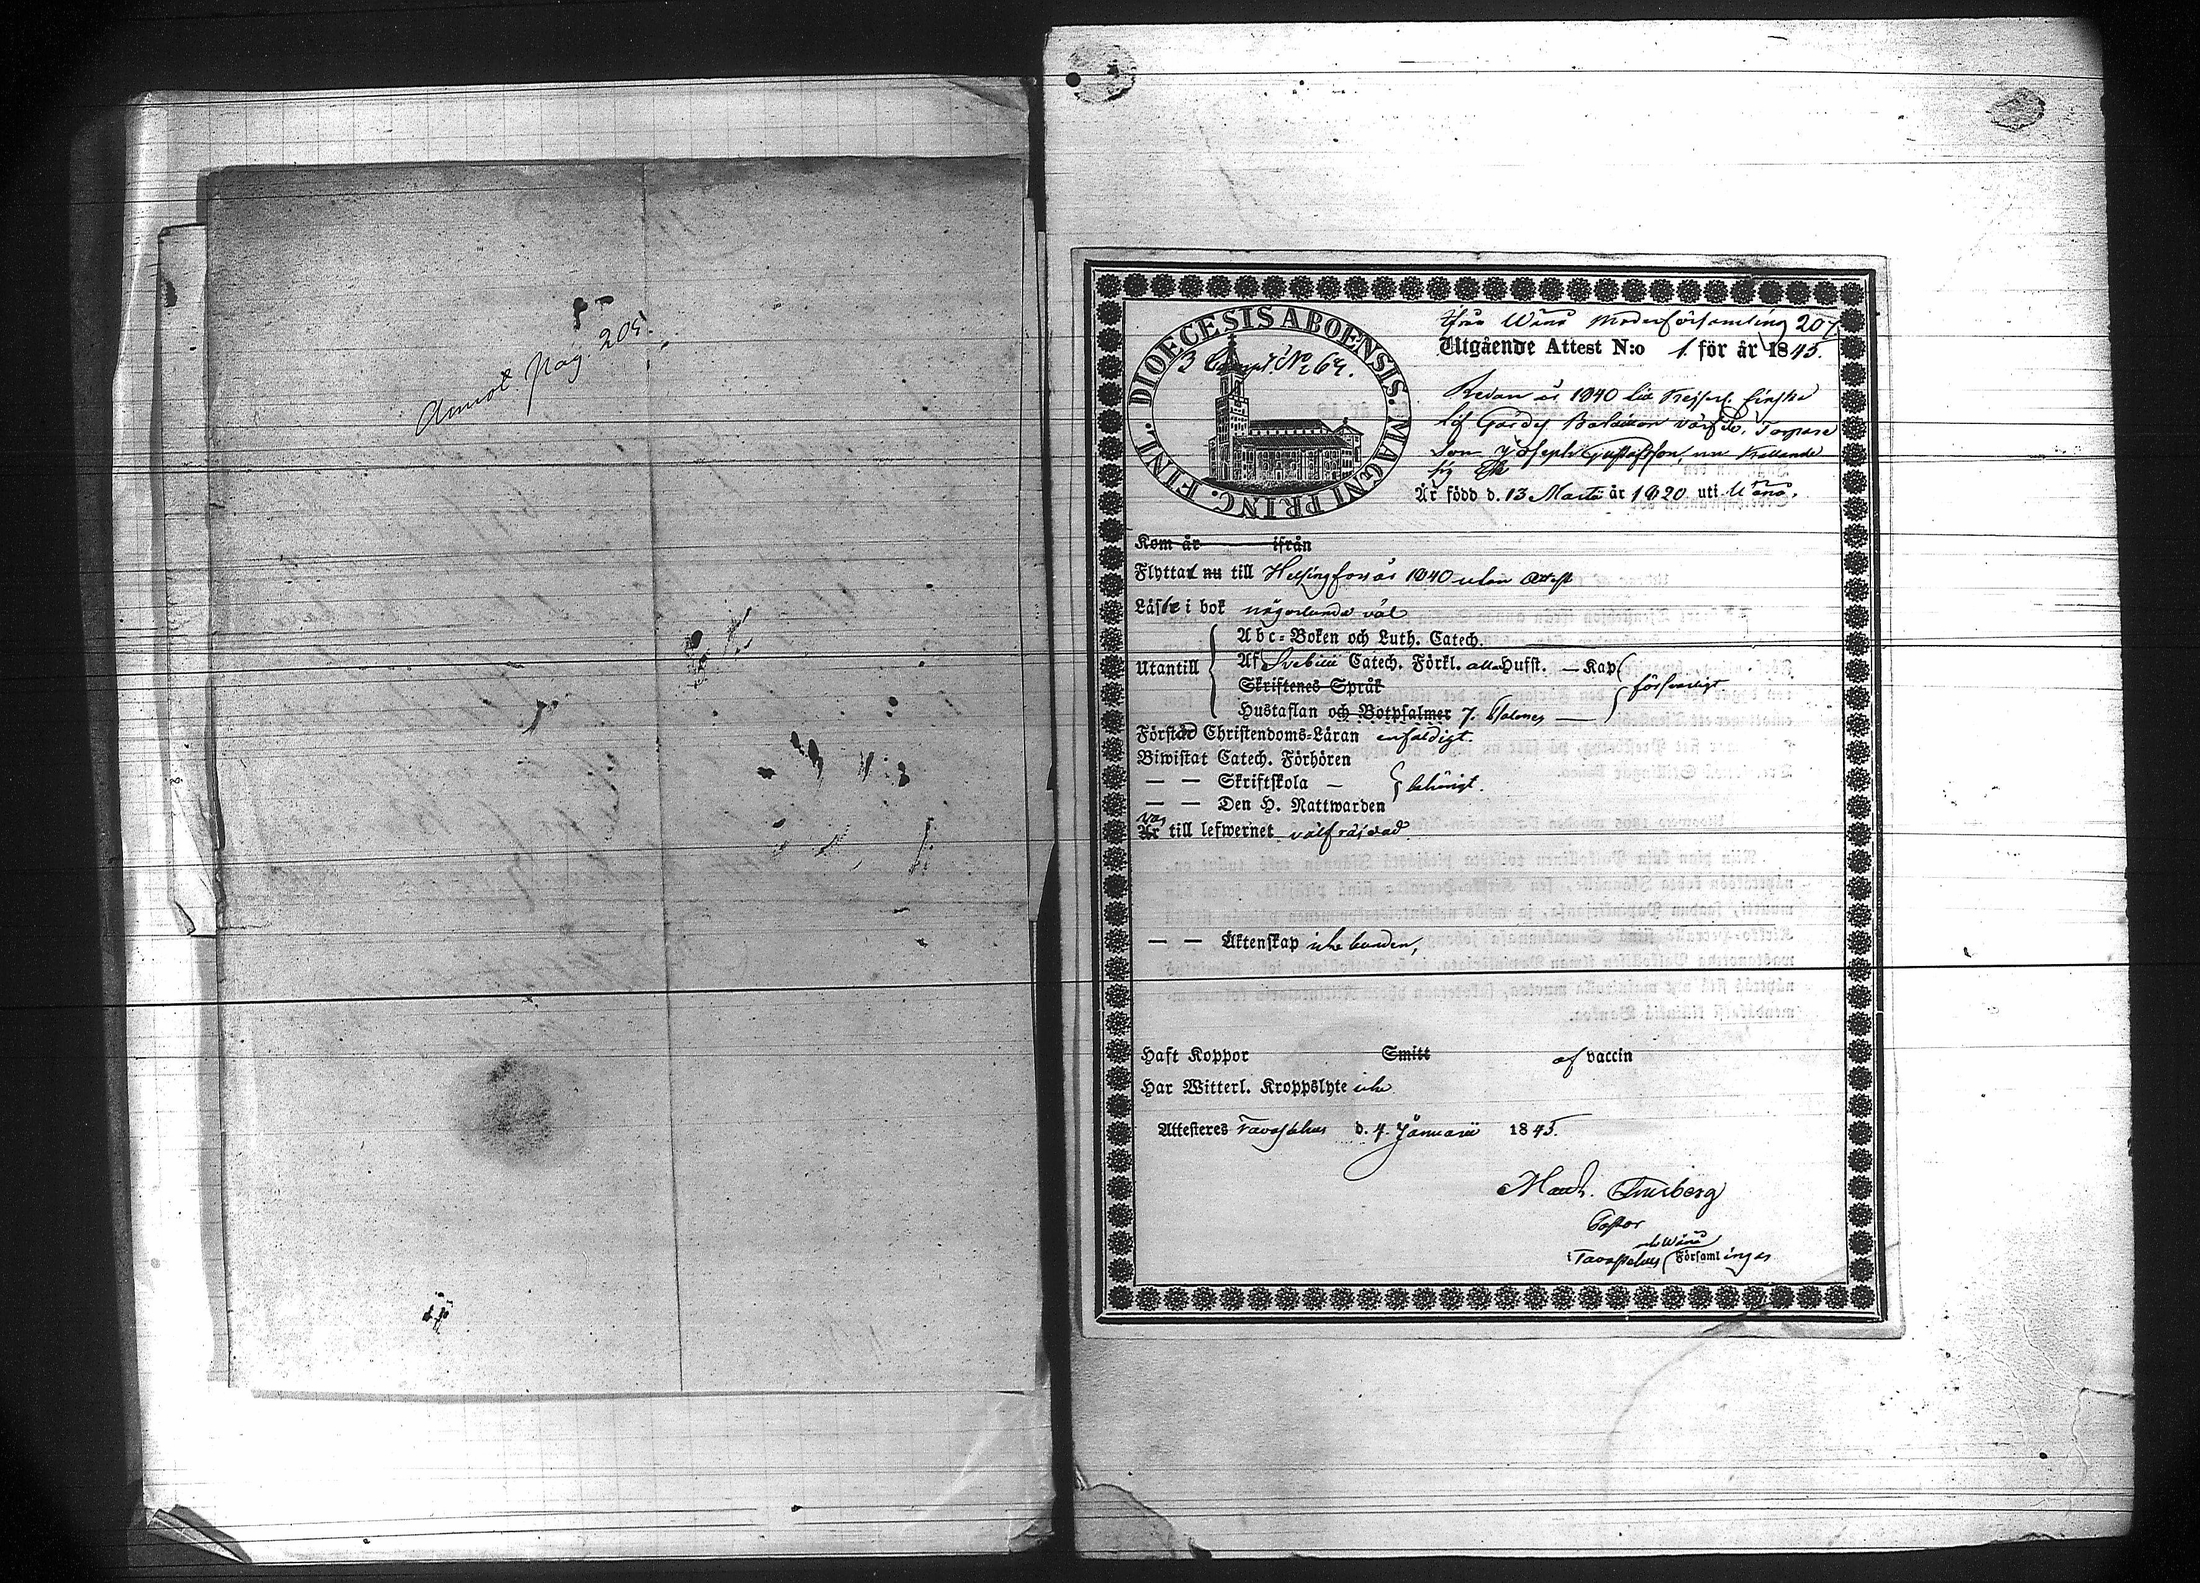 Annot. Pag. 205.
DIOECESIS ABOENSIS. MAGNI PRINC. FINL.
3 Comp. No 64.
ifrån Wånå Moderförsamling 207
Utgående Attest N:o 1. för år 1845.
Redan år 1840 till Kejserl. Finska
lif Gardes Bataillon värfde Torpare
Son Joseph Gustafsson, nu kallande
sig Ek
Är född d. 13 Martii år 1820 uti Wånå.
Kom år ifrån
Flyttat nu till Helsingfors år 1840 utan Attest
Läste i bok någorlunda väl
Abc-Boken och Luth. Catech.
Utantill Af Svebilii Catech. Förkl. alla Hufst. — Kap försvarligt
Skriftenes Språk
Hustaflan och Botpsalmer 7. Psalmer —
Förstod Christendoms-Läran enfaldigt.
Biwistat Catech. Förhören
— — Skriftskola — behörigt.
— — Den H. Nattwarden
var
Är till lefwernet välfräjdad
— — Äktenskap icke bunden,
Haft Koppor Smitt af vaccin
Har Witterl. Kroppslyte icke
Attesteres Tavastehus d. 4. Januarii 1845.
Pastor
och Wånå
i Tavastehus Församlingar